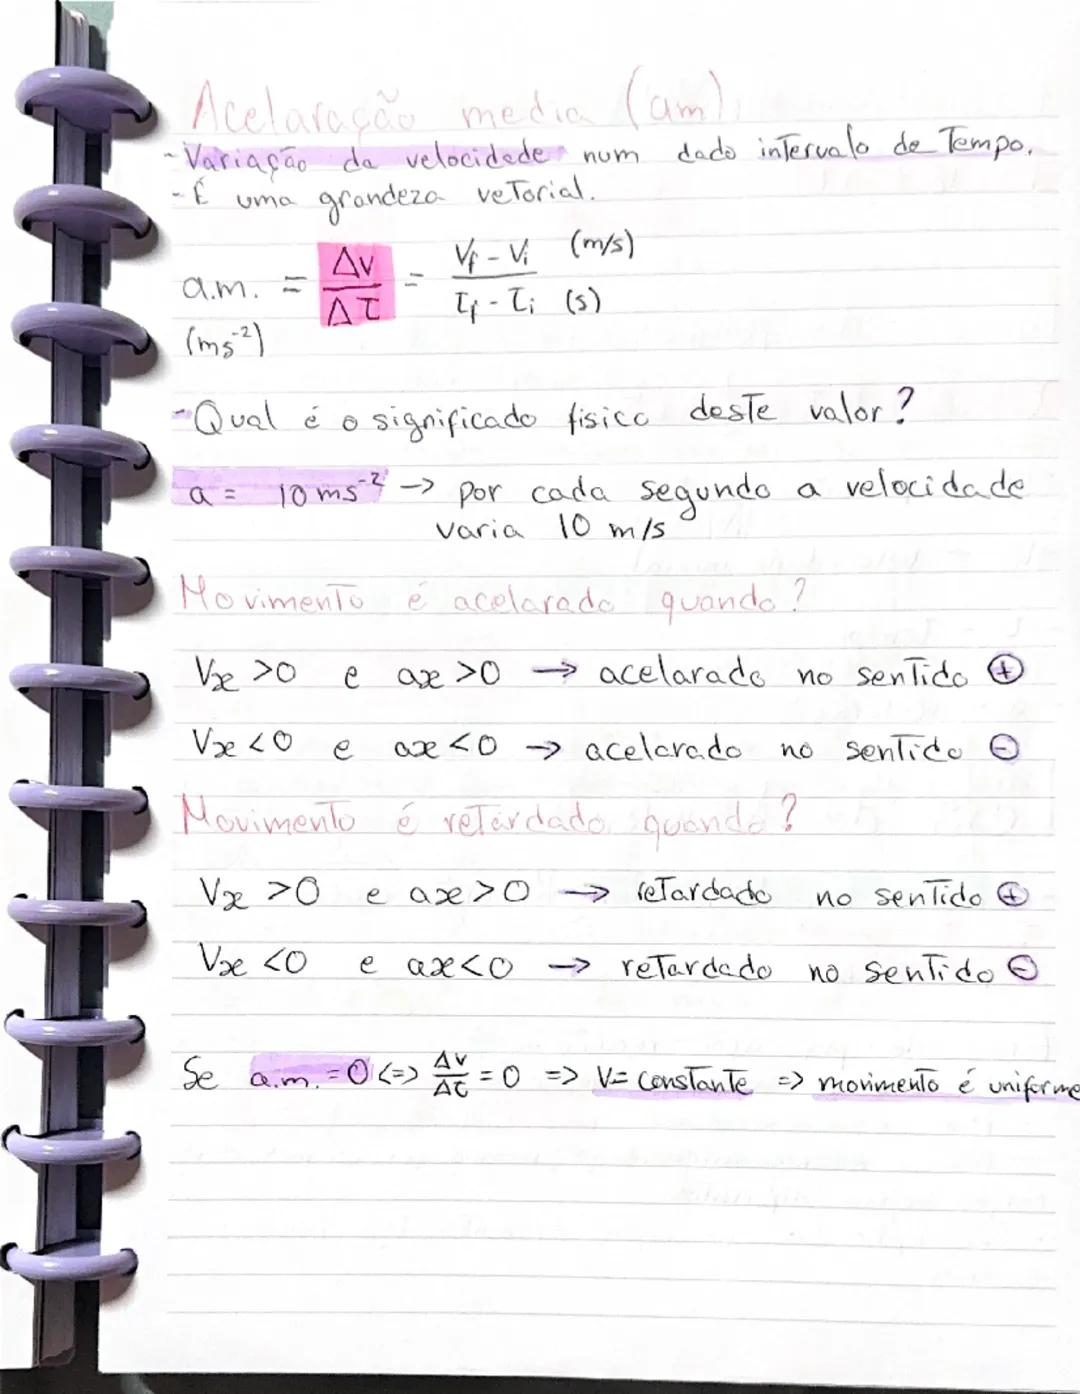 Acelaração media (am)
- Variação da velocidade num dado intervalo de Tempo.
- É uma grandeza veTorial.
a.m. = ΔV/Δτ = Vf - Vi (m/s) / τf - τi (s)
(ms⁻²)
- Qual é o significado fisico desTe valor?
a = 10 ms⁻² -> por cada segundo a velocidade
varia 10 m/s
MovimenTo é acelarado quando?
Vx >0 e ax >0 -> acelarado no senTido ⊕
Vx <0 e ax <0 -> acelarado no senTido ⊖
MovimenTo é reTardado quando?
Vx >0 e ax >0 -> reTardado no senTido ⊕
Vx <0 e ax <0 -> reTardado no senTido ⊖
Se a.m. = 0 <=> ΔV/Δτ = 0 => V = consTanTe => movimenTo é uniforme